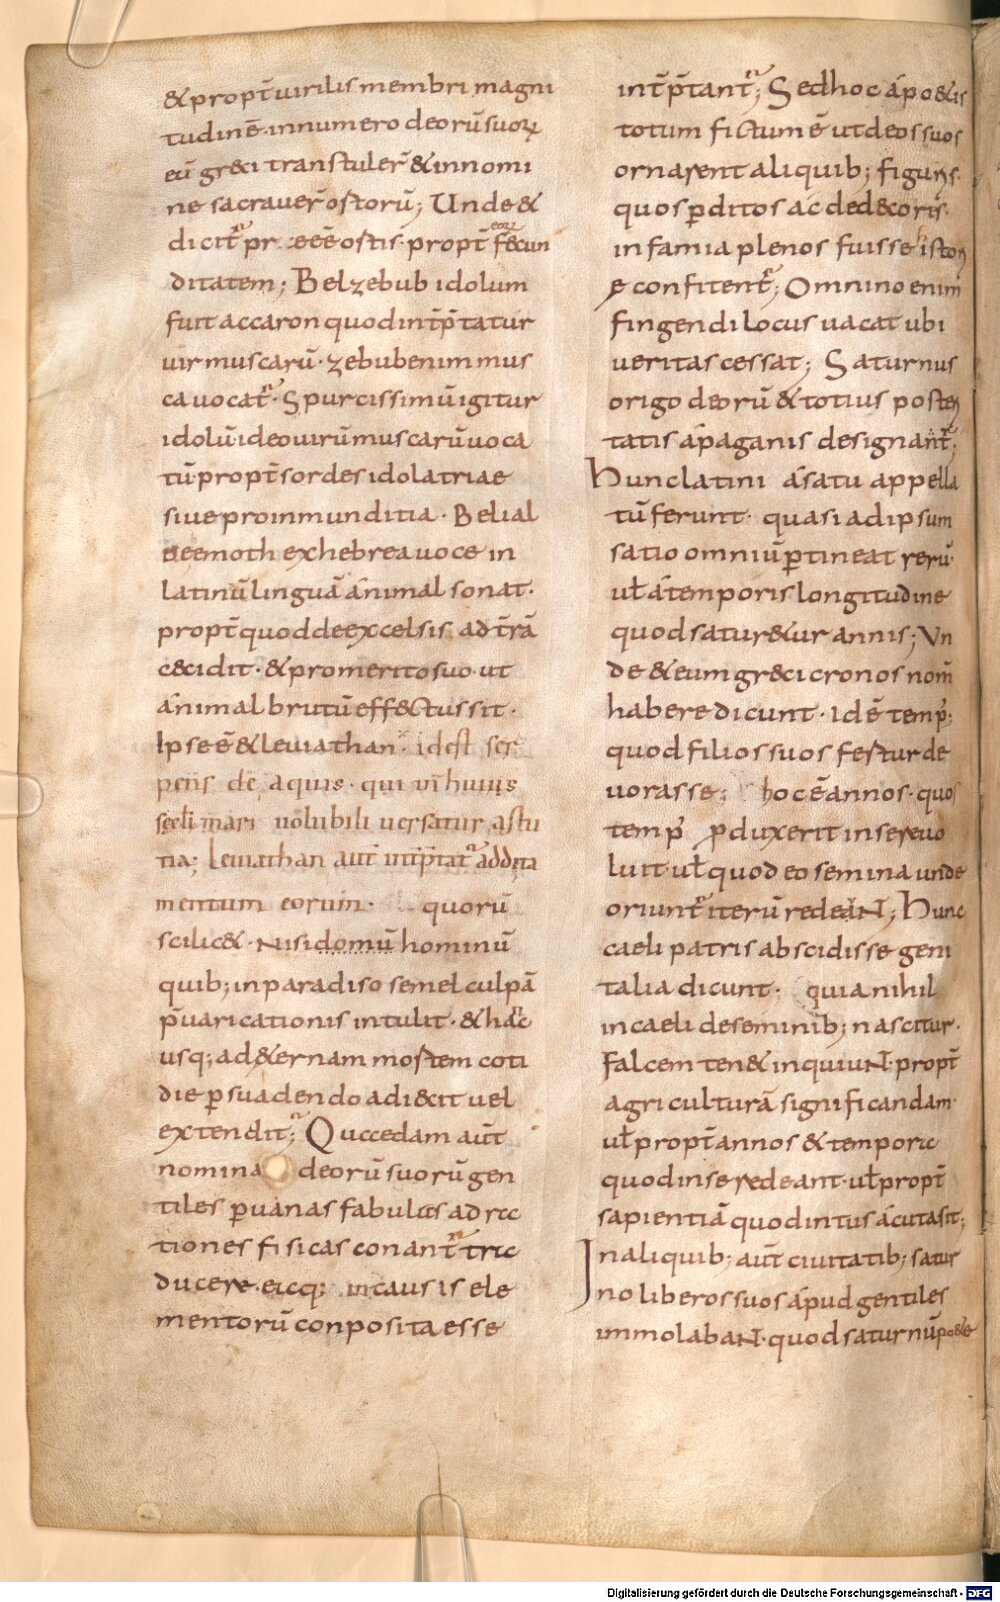 & propt̄ uirilis membri magni
tudinē· in numero deorū suoꝝ
eū gr&ci transtuler̄ & in nomi
ne sacrauer̄ ostorū; Unde &
dicit̄ pr eēē ostis· propt̄ eoꝝ fecun
ditatem; Belzebub idolum
fuit accaron quod int̄p̄tatur
uir muscarū· zebub enim mus
ca uocat̄· Spurcissimū igitur
idolū ideo uirū muscarū uoca
tū propt̄ sordes idolatriae
siue pro inmunditia· Belial
beemoth ex hebrea uoce in
latinū linguā animal sonat·
propt̄ quod de excelsis ad t̄rā
c&cidit· & pro merito suo ut
animal brutū eff&ctus sit·
Ipse ē & leuiathan· idest ser
pens de aquis· qui in huius
sęcli mari uolubili uersatur astu
tia; Leuiathan aut̄ int̄p̄tat̄ addita
mentum eorum· quorū
scilic& · nisi domū hominū
quib; in paradiso semel culpā
p̄uaricationis intulit· & hac
usq; ad &ernam mortem coti
die ꝑsuadendo adi&cit uel
extendit̄; Quaedam aut̄
nomina deorū suorū gen
tiles ꝑ uanas fabulas ad ra
tiones fisicas conant̄ tra
ducere· eaq; in causis ele
mentorū conposita esse
int̄p̄tant̄; Sed hoc a po&is
totum fictum ē ut deos suos
ornarent aliquib; figuris·
quos ꝑditos ac dedecoris
infamia plenos fuisse histori
ę confitent̄; Omnino enim
fingendi locus uacat ubi
ueritas cessat; Saturnus
origo deorū & totius posteri
tatis a paganis designant̄;
Hunc latini a satu appella
tū ferunt· quasi ad ipsum
satio omniū ꝑtineat rerū·
ul̄ a temporis longitudine
quod satur&ur annis; Vn
de & eum gr&ci cronos nom̄
habere dicunt· id ē temp̄;
quod filios suos fertur de
uorasse; hoc ē annos· quos
temp̄ ꝓduxerit in se reuo
luit· ul̄ quod eo semina unde
oriunt̄ iterū redeaN; Hunc
caeli patris abscidisse geni
talia dicunt· quia nihil
in caeli de seminib; nascitur·
Falcem ten& inquiuN· propt̄
agri culturā significandam·
ul̄ propt̄ annos & tempora
quod in se redeant· ul̄ propt̄
sapientiā quod intus acuta sit;
In aliquib; aut̄ ciuitatib; satur
no liberos suos apud gentiles
immolabaN· quod saturnū po&e
Digitalisierung gefördert durch die Deutsche Forschungsgemeinschaft - DFG